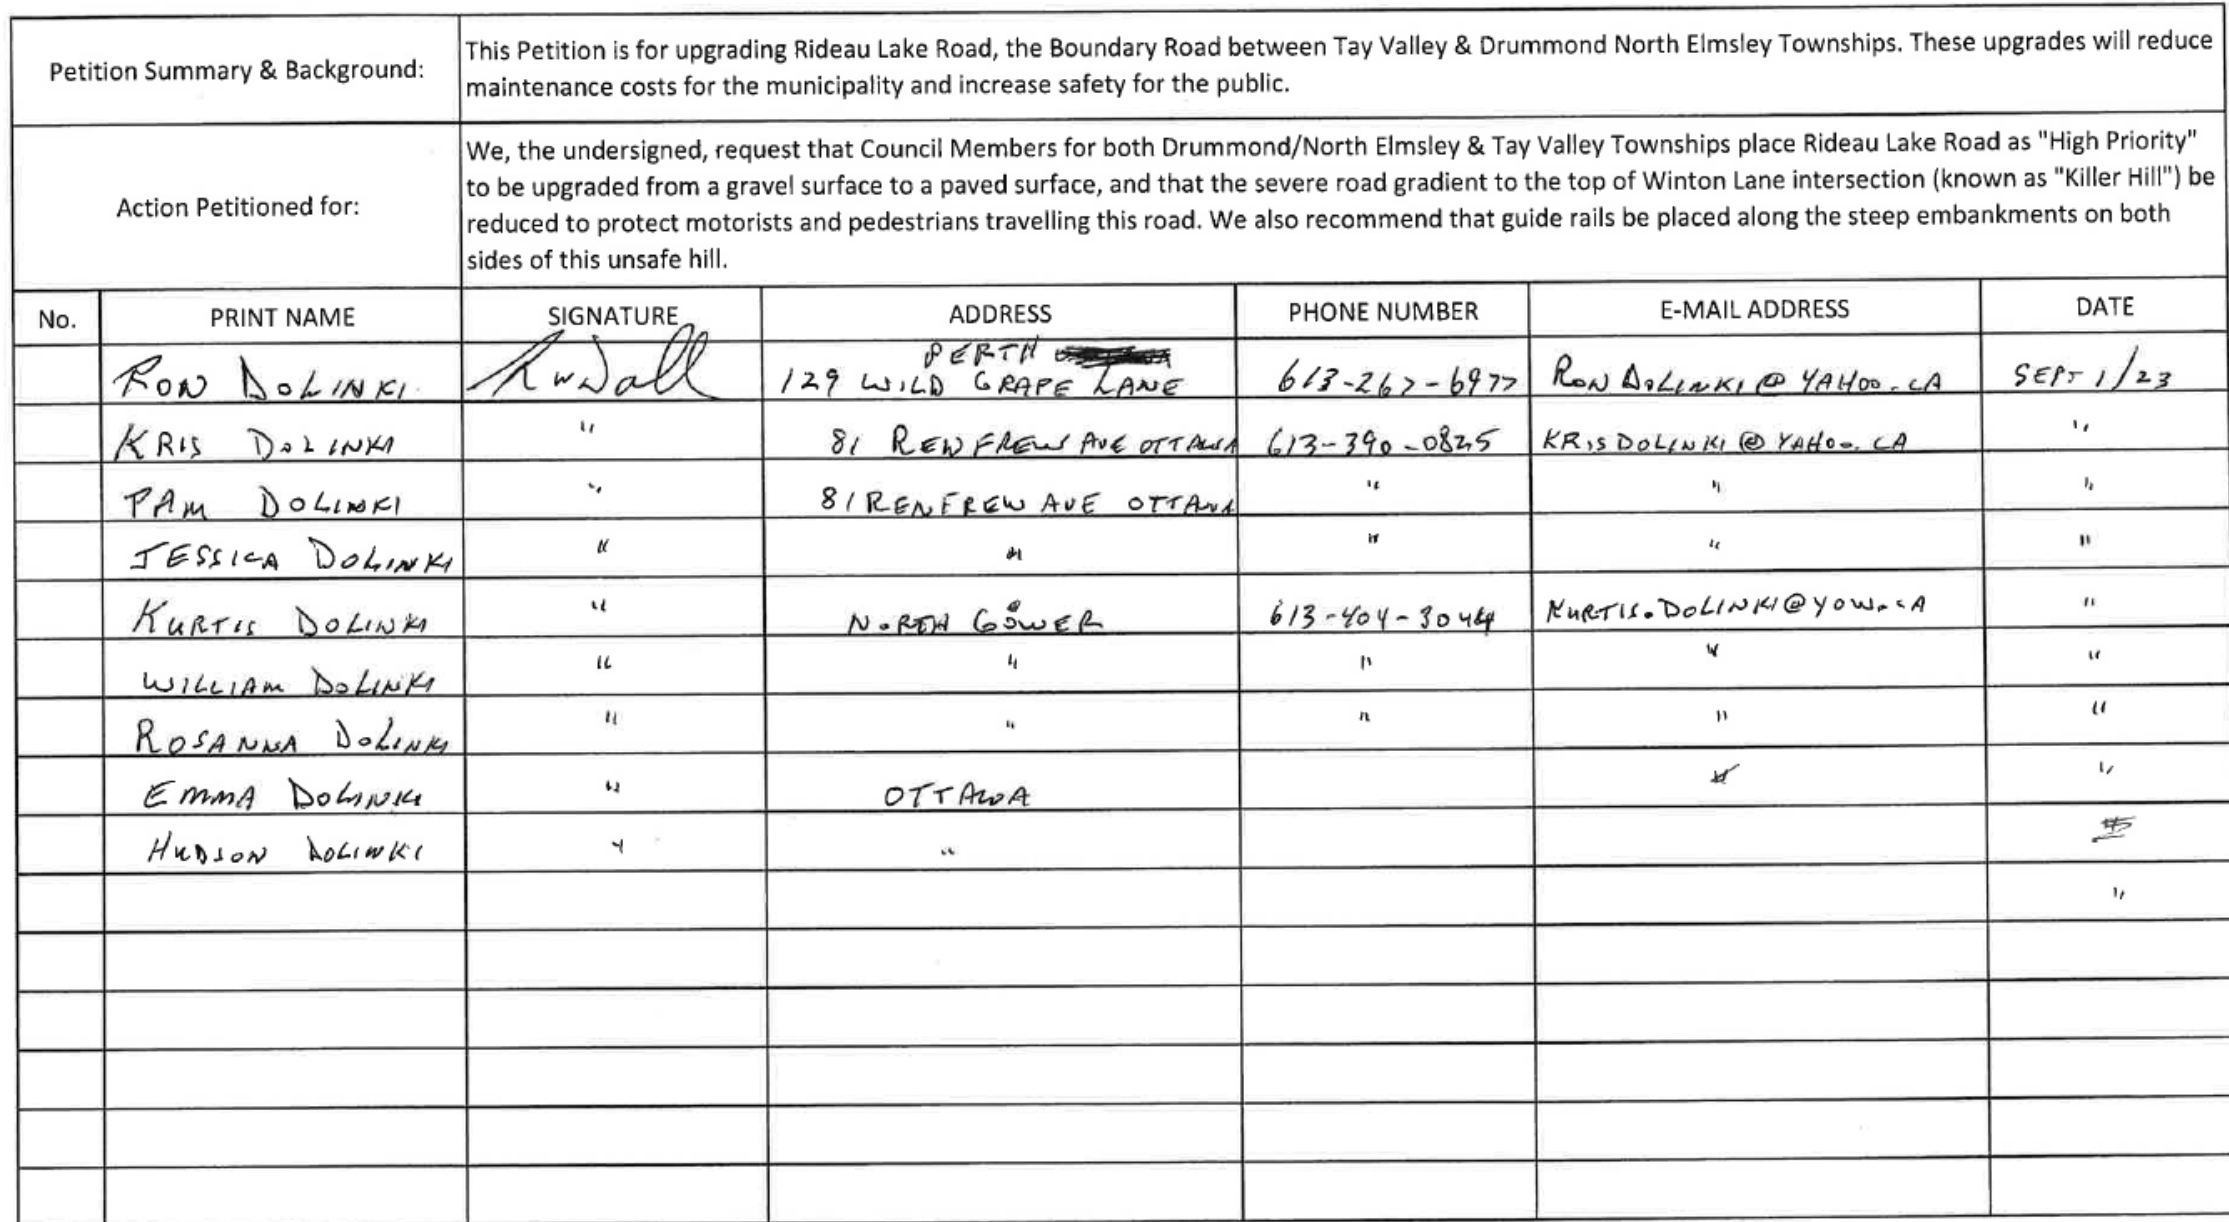 Petition Summary & Background:
This Petition is for upgrading Rideau Lake Road, the Boundary Road between Tay Valley & Drummond North Elmsley Townships. These upgrades will reduce
maintenance costs for the municipality and increase safety for the public.
Action Petitioned for:
We, the undersigned, request that Council Members for both Drummond/North Elmsley & Tay Valley Townships place Rideau Lake Road as "High Priority"
to be upgraded from a gravel surface to a paved surface, and that the severe road gradient to the top of Winton Lane intersection (known as "Killer Hill") be
reduced to protect motorists and pedestrians travelling this road. We also recommend that guide rails be placed along the steep embankments on both
sides of this unsafe hill.
No. PRINT NAME SIGNATURE ADDRESS PHONE NUMBER E-MAIL ADDRESS DATE
PERTH
RON DOLINKI 129 WILD GRAPE LANE 613-267-6977 RON DOLINKI @ YAHOO.CA SEPT 1/23
KRIS DOLINKI " 81 RENFREW AVE OTTAWA 613-390-0825 KRISDOLINKI @ YAHOO.CA "
PAM DOLINKI " 81 RENFREW AVE OTTAWA " " "
JESSICA DOLINKI " " " " "
KURTIS DOLINKI " NORTH GOWER 613-404-3044 KURTIS.DOLINKI@YOW.CA "
WILLIAM DOLINKI " " " " "
ROSANNA DOLINKI " " " " "
EMMA DOLINKI " OTTAWA "
HUDSON DOLINKI " "
"